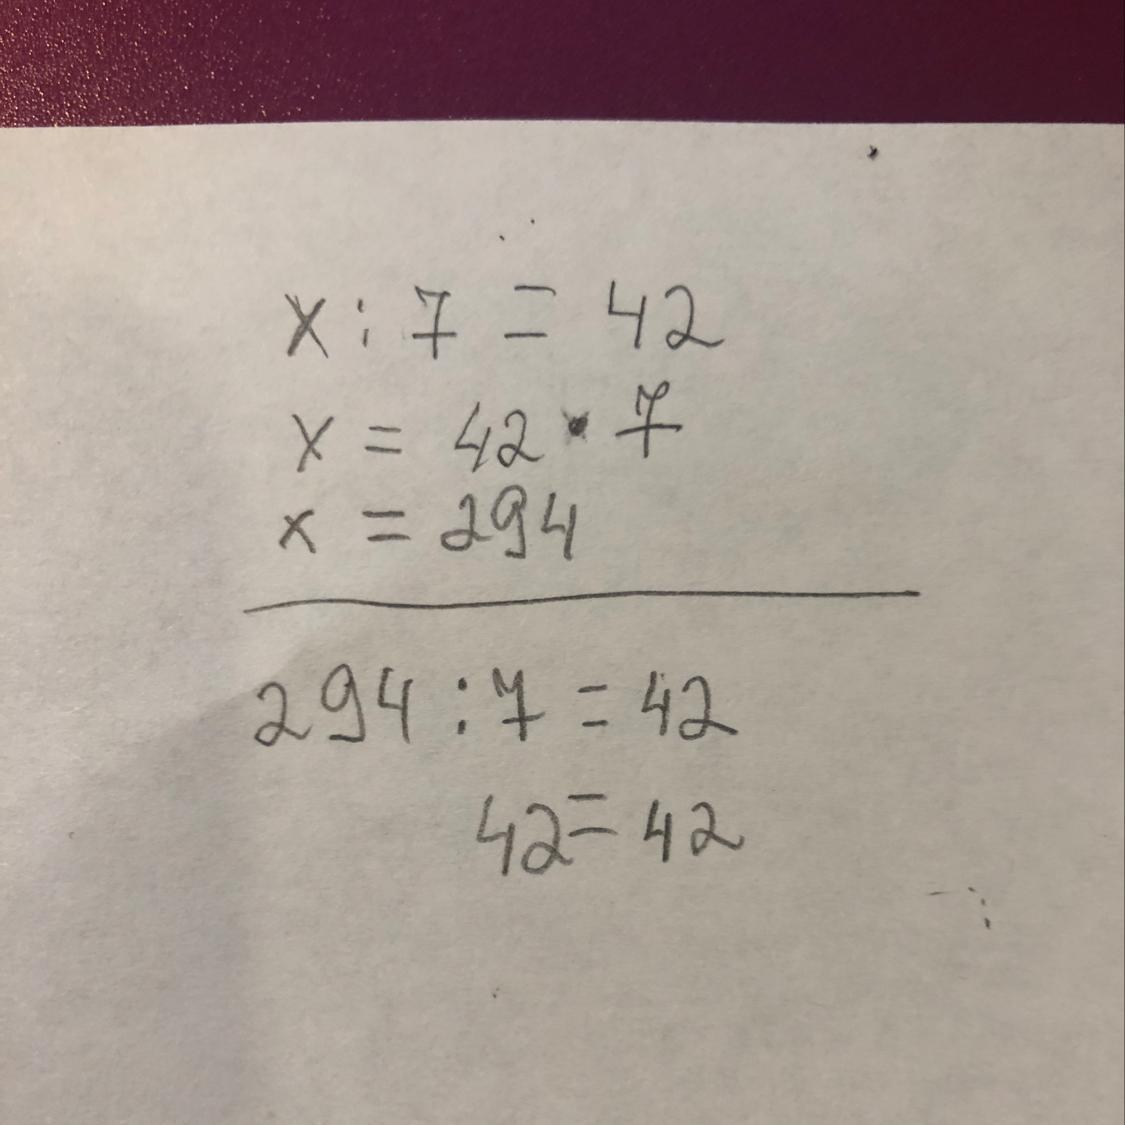 x : 7 = 42
x = 42 · 7
x = 294
294 : 7 = 42
42 = 42